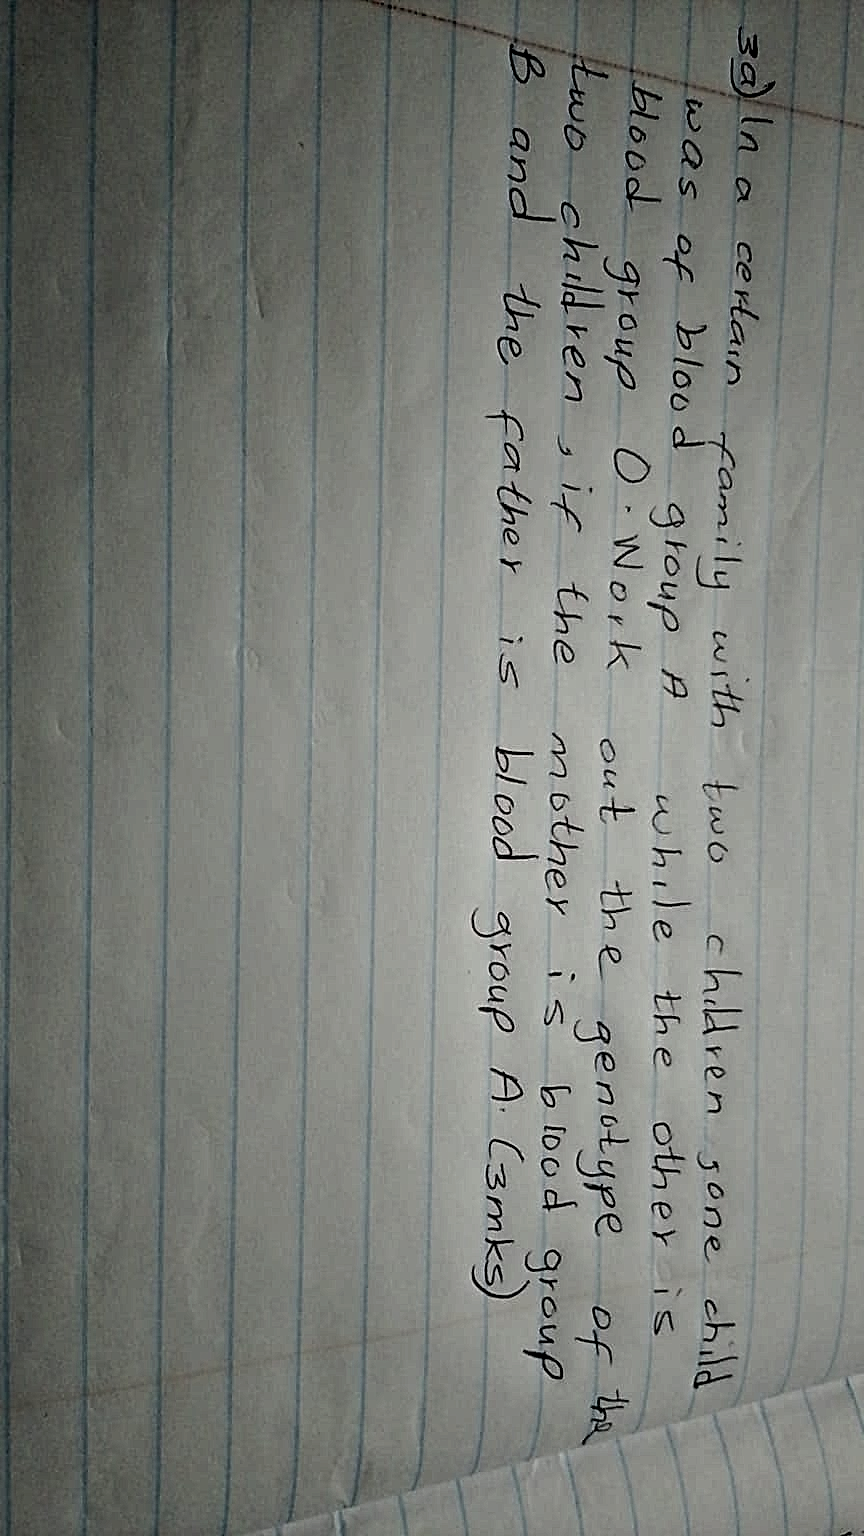 3a) In a certain family with two children, one child
was of blood group A while the other is
blood group O. Work out the genotype of the
two children, if the mother is blood group
B and the father is blood group A. (3mks)